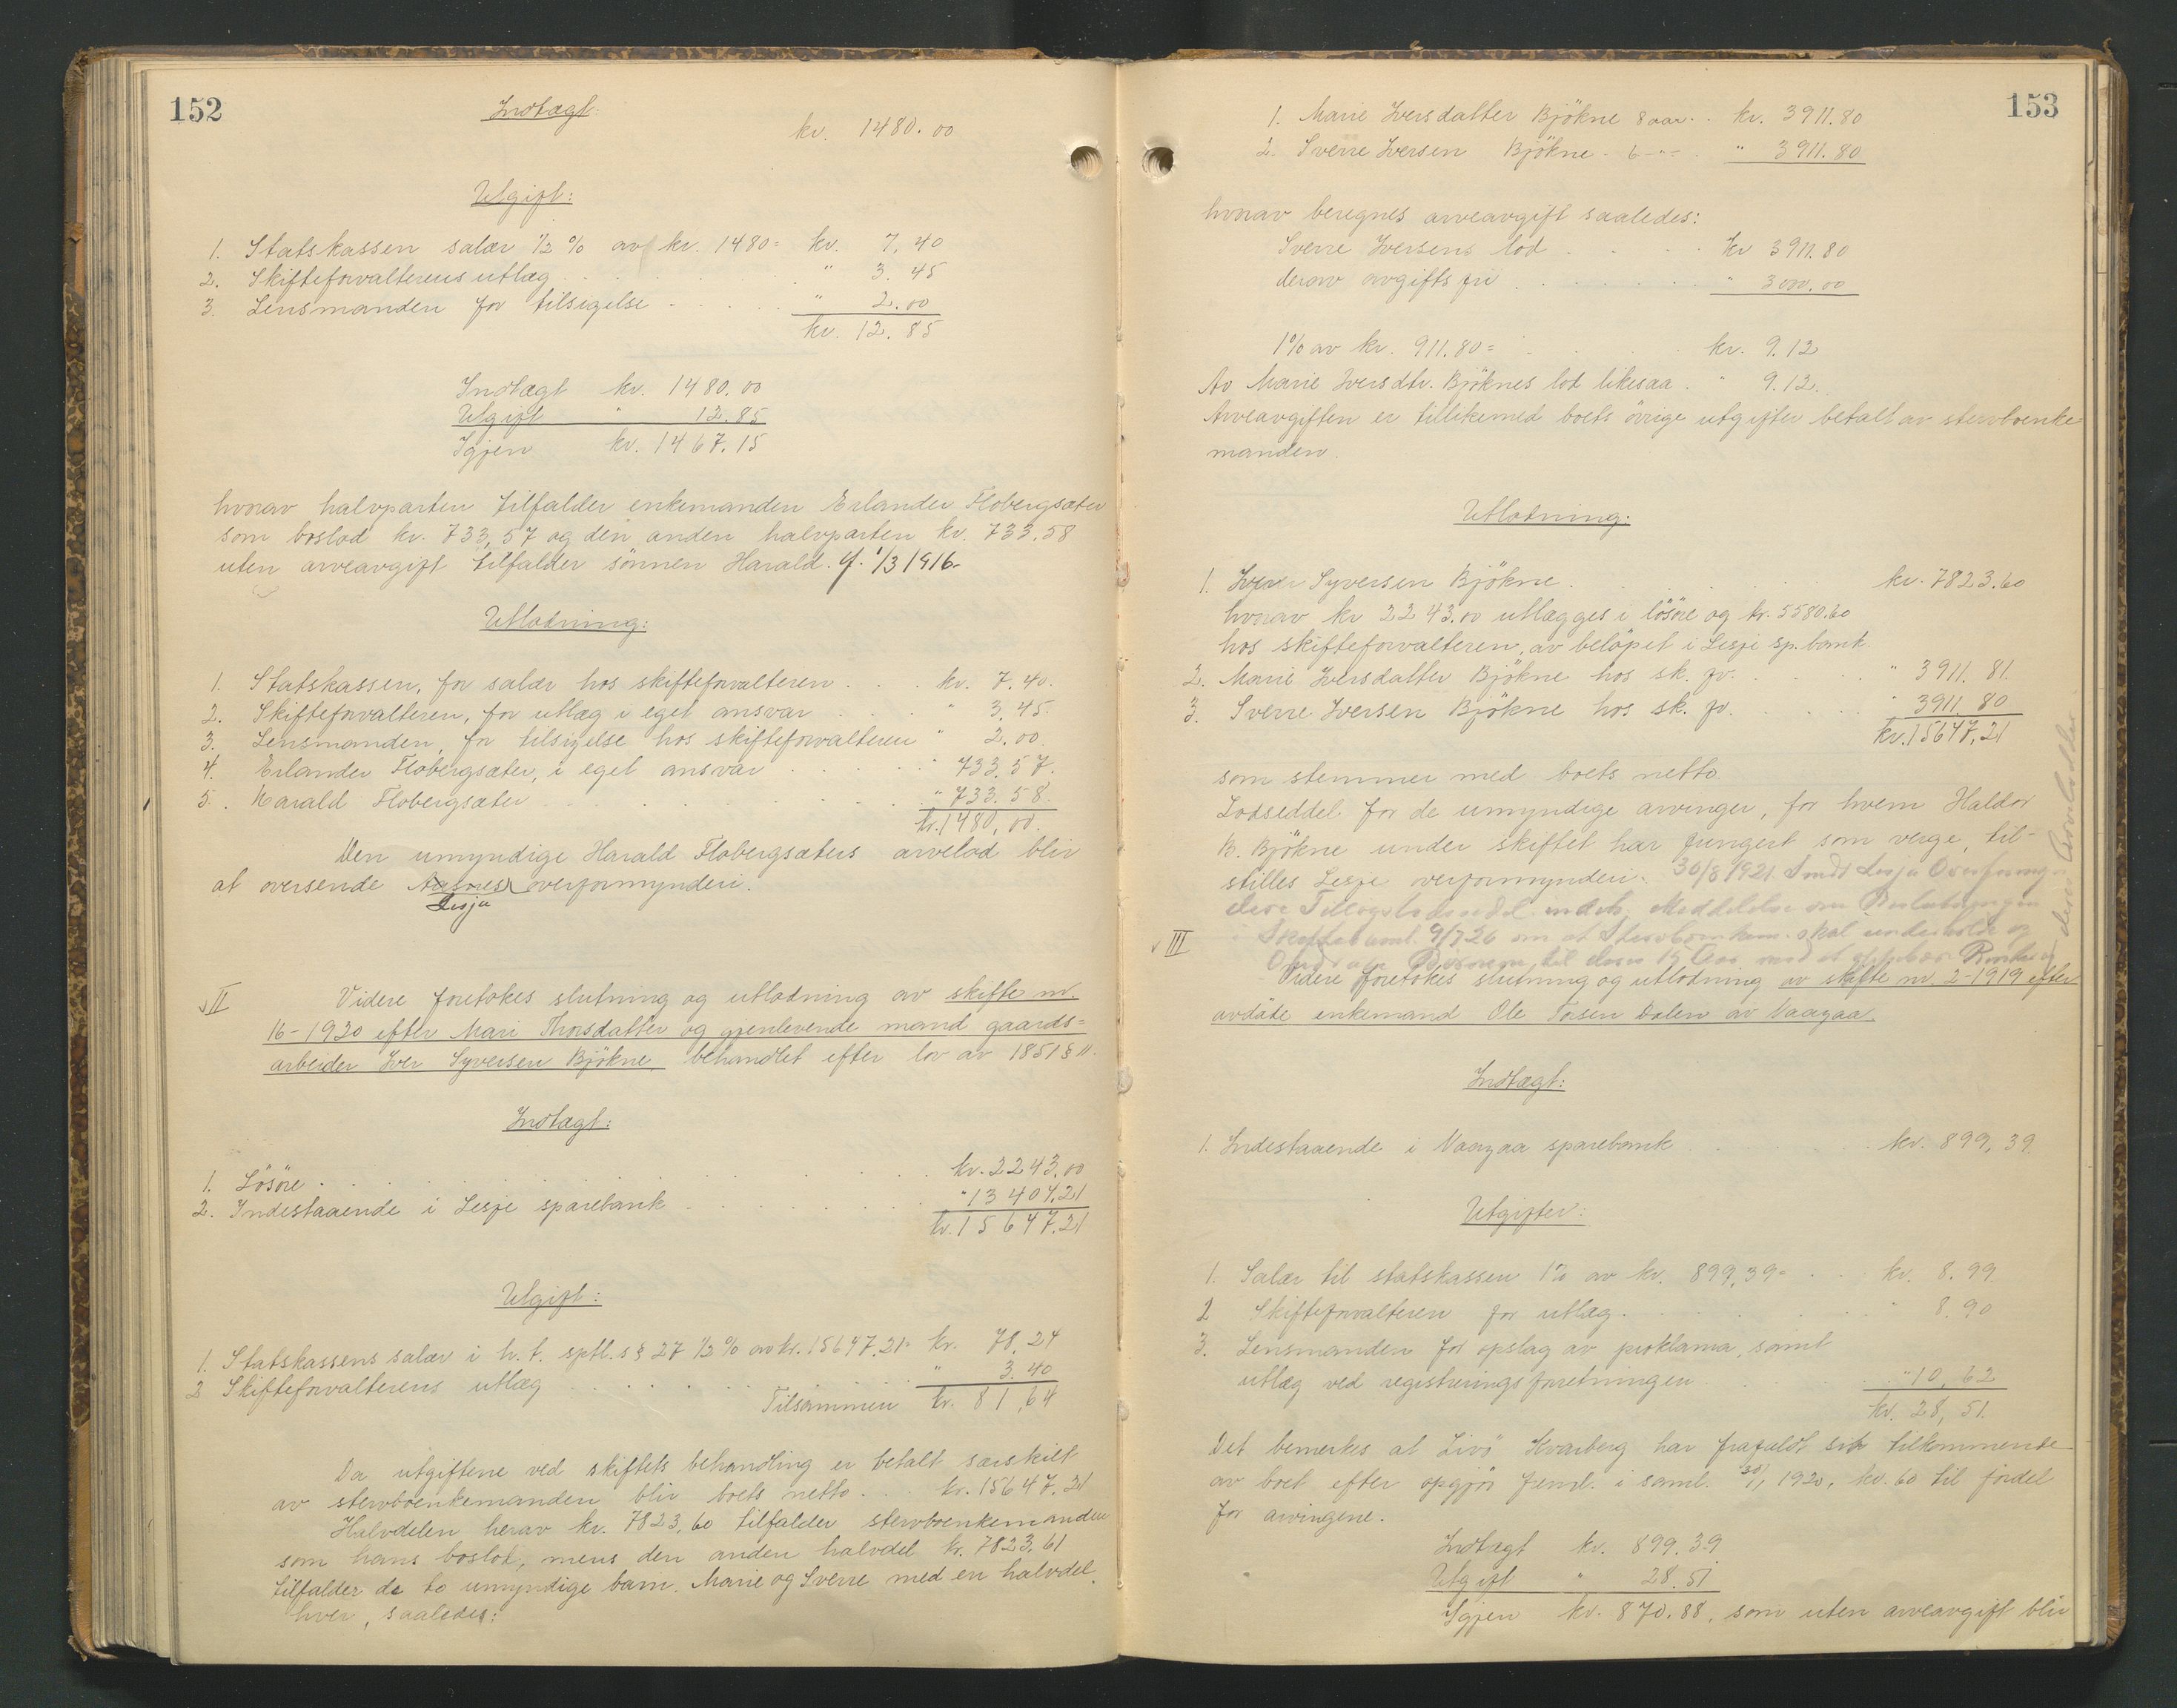 152
Indtægt:
kr. 1480.00
Utgift:
1. Statskassen salær ½ % av kr. 1480 = kr. 7.40
2. Skifteforvalterens utlæg . . . " 3.45
3. Lensmanden for tilsigelse . . . " 2.00
kr. 12.85
Indtægt kr. 1480.00
Utgift " 12.85
Igjen kr. 1467.15
hvorav halvparten tilfalder enkemanden Erlander Flobergsæter
som boslod kr. 733,57 og den anden halvparten kr. 733.58
uten arveavgift tilfalder sönnen Harald. f. 1/3 1916.
Utlodning:
1. Statskassen, for salær hos skifteforvalteren . . . kr. 7.40.
2. Skifteforvalteren, for utlæg i eget ansvar . . " 3.45.
3. Lensmanden, for tilsigelse hos skifteforvalteren " 2.00.
4. Erlander Flobergsæter, i eget ansvar . . . " 733.57.
5. Harald Flobergsæter . . . " 733.58.
kr. 1480,00.
Den umyndige Harald Flobergsæters arvelod blir
at oversende Aasnes overformynderi.
Lesja
II Videre foretokes slutning og utlodning av skifte nr.
16-1920 efter Mari Thorsdatter og gjenlevende mand gaards=
arbeider Iver Syversen Bjökne, behandlet efter lov av 1851 § 11.
Indtægt:
1. Lösöre . . . kr. 2243.00
2. Indestaaende i Lesje sparebank . . . " 13404.21
kr. 15647.21
Utgift:
1. Statskassens salær i h. t. sptl. s § 27 ½ % av kr. 15647.21 = kr. 78.24
2 Skifteforvalterens utlæg . . . " 3.40
Tilsammen kr. 81,64
Da utgiftene ved skiftets behandling er betalt særskilt
av stervboenkemanden blir boets netto . . . kr. 15647.21
Halvdelen herav kr. 7823.60 tilfalder stervboenkemanden
som hans boslod, mens den anden halvdel kr. 7823.61
tilfalder de to umyndige barn. Marie og Sverre med en halvdel
hver, saaledes:
153
1. Marie Iversdatter Bjökne 8 aar . . kr. 3911.80
2. Sverre Iversen Bjökne . 6 -"- . " 3911.80
hvorav beregnes arveavgift saaledes:
Sverre Iversens lod . . . Kr 3911.80
derav avgiftsfri . . . " 3000.00
1% av kr. 911.80 = . . . kr. 9.12
Av Marie Iversdtr. Bjöknes lod likesaa . " 9.12.
Arveavgiften er tillikemed boets övrige utgifter betalt av stervboenke
manden.
Utlodning:
1. Iver Syversen Bjökne . . . kr. 7823.60
hvorav kr 2243.00 utlægges i lösöre og kr. 5580.60
hos skifteforvalteren, av belöpet i Lesje sp.bank.
2. Marie Iversdatter Bjökne hos sk. fv. . . . " 3911.81.
3. Sverre Iversen Bjökne hos sk. fv. . . . " 3911.80
kr. 15647,21
som stemmer med boets netto.
Lodseddel for de umyndige arvinger, for hvem Haldor
B. Bjökne under skiftet har fungert som verge, til-
stilles Lesje overformynderi. 30/8 1921 Sendt Lesja Overformyn
III Videre foretokes slutning og utlodning av skifte nr. 2-1919 efter
avdöde enkemand Ole Torsen Dalen av Vaagaa.
Indtægt:
1. Indestaaende i Vaagaa sparebank . . . kr. 899,39.
Utgifter:
1. Salær til statskassen 1% av kr. 899,39 = . . kr. 8.99
2 Skifteforvalteren for utlæg . . . " 8.90
3. Lensmanden for opslag av proklama, samt
utlæg ved registreringsforretningen . . " 10,62
kr. 28,51.
Det bemerkes at Livö Kvarberg har frafaldt sit tilkommende
av boet efter opgjör freml. i saml. 1920, kr. 60 til fordel
for arvingene.
Indtægt kr. 899.39
Utgift " 28.51
Igjen kr. 870.88, som uten arveavgift blir